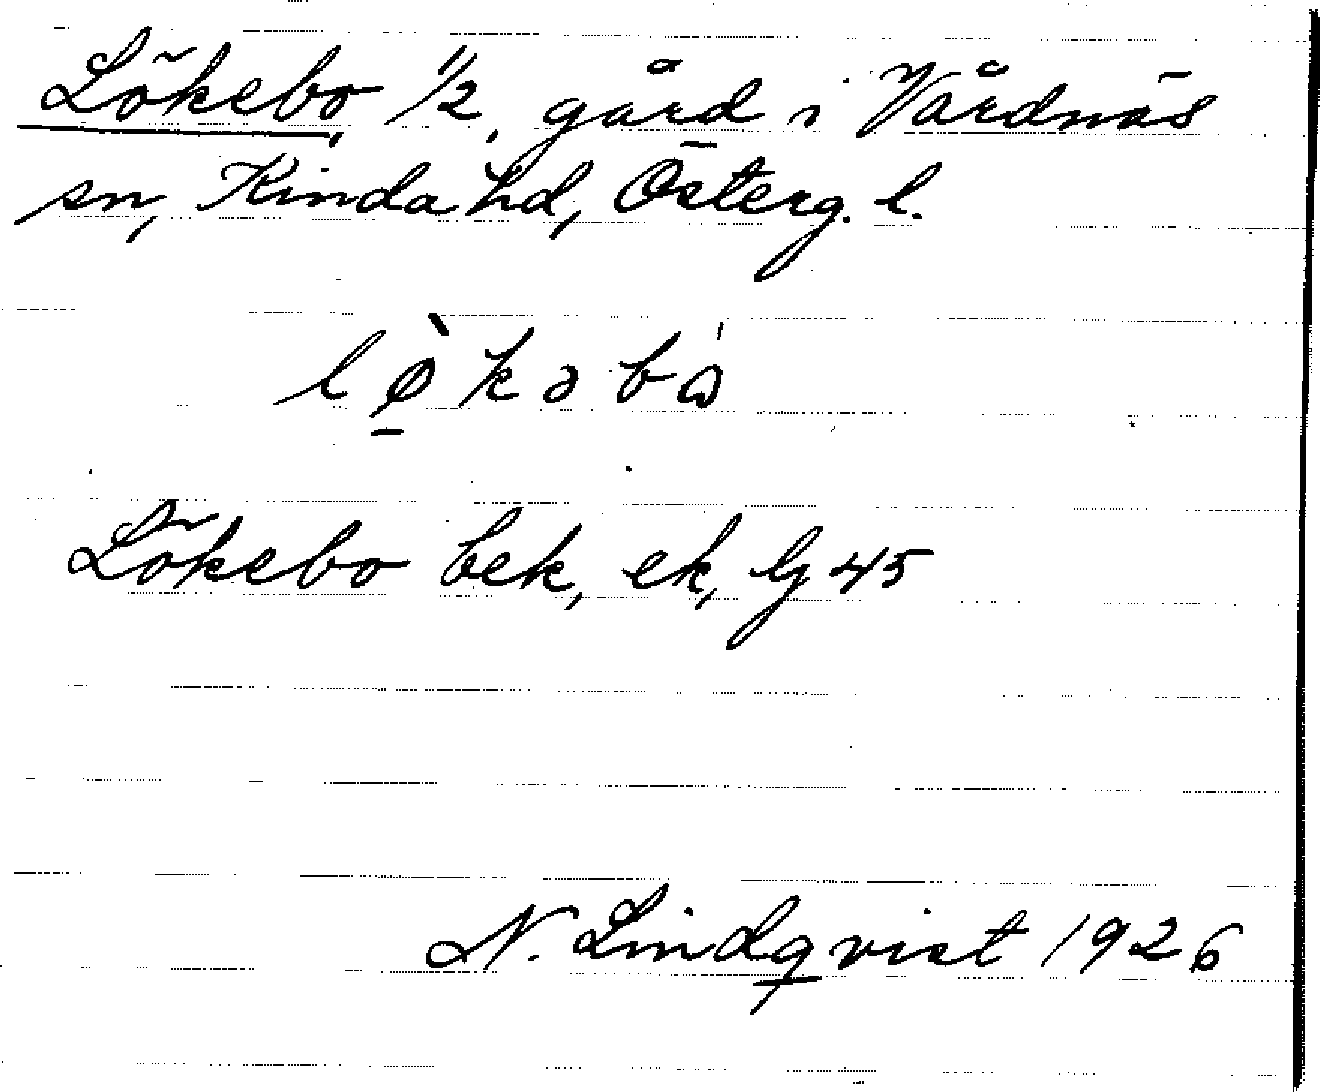 Lökebo, 1/2, gård i Vårdnäs
sn, Kinda hd, Österg. l.
lø̠̀kəbò
Lökebo bek, ek, lj 45
N. Lindqvist 1926